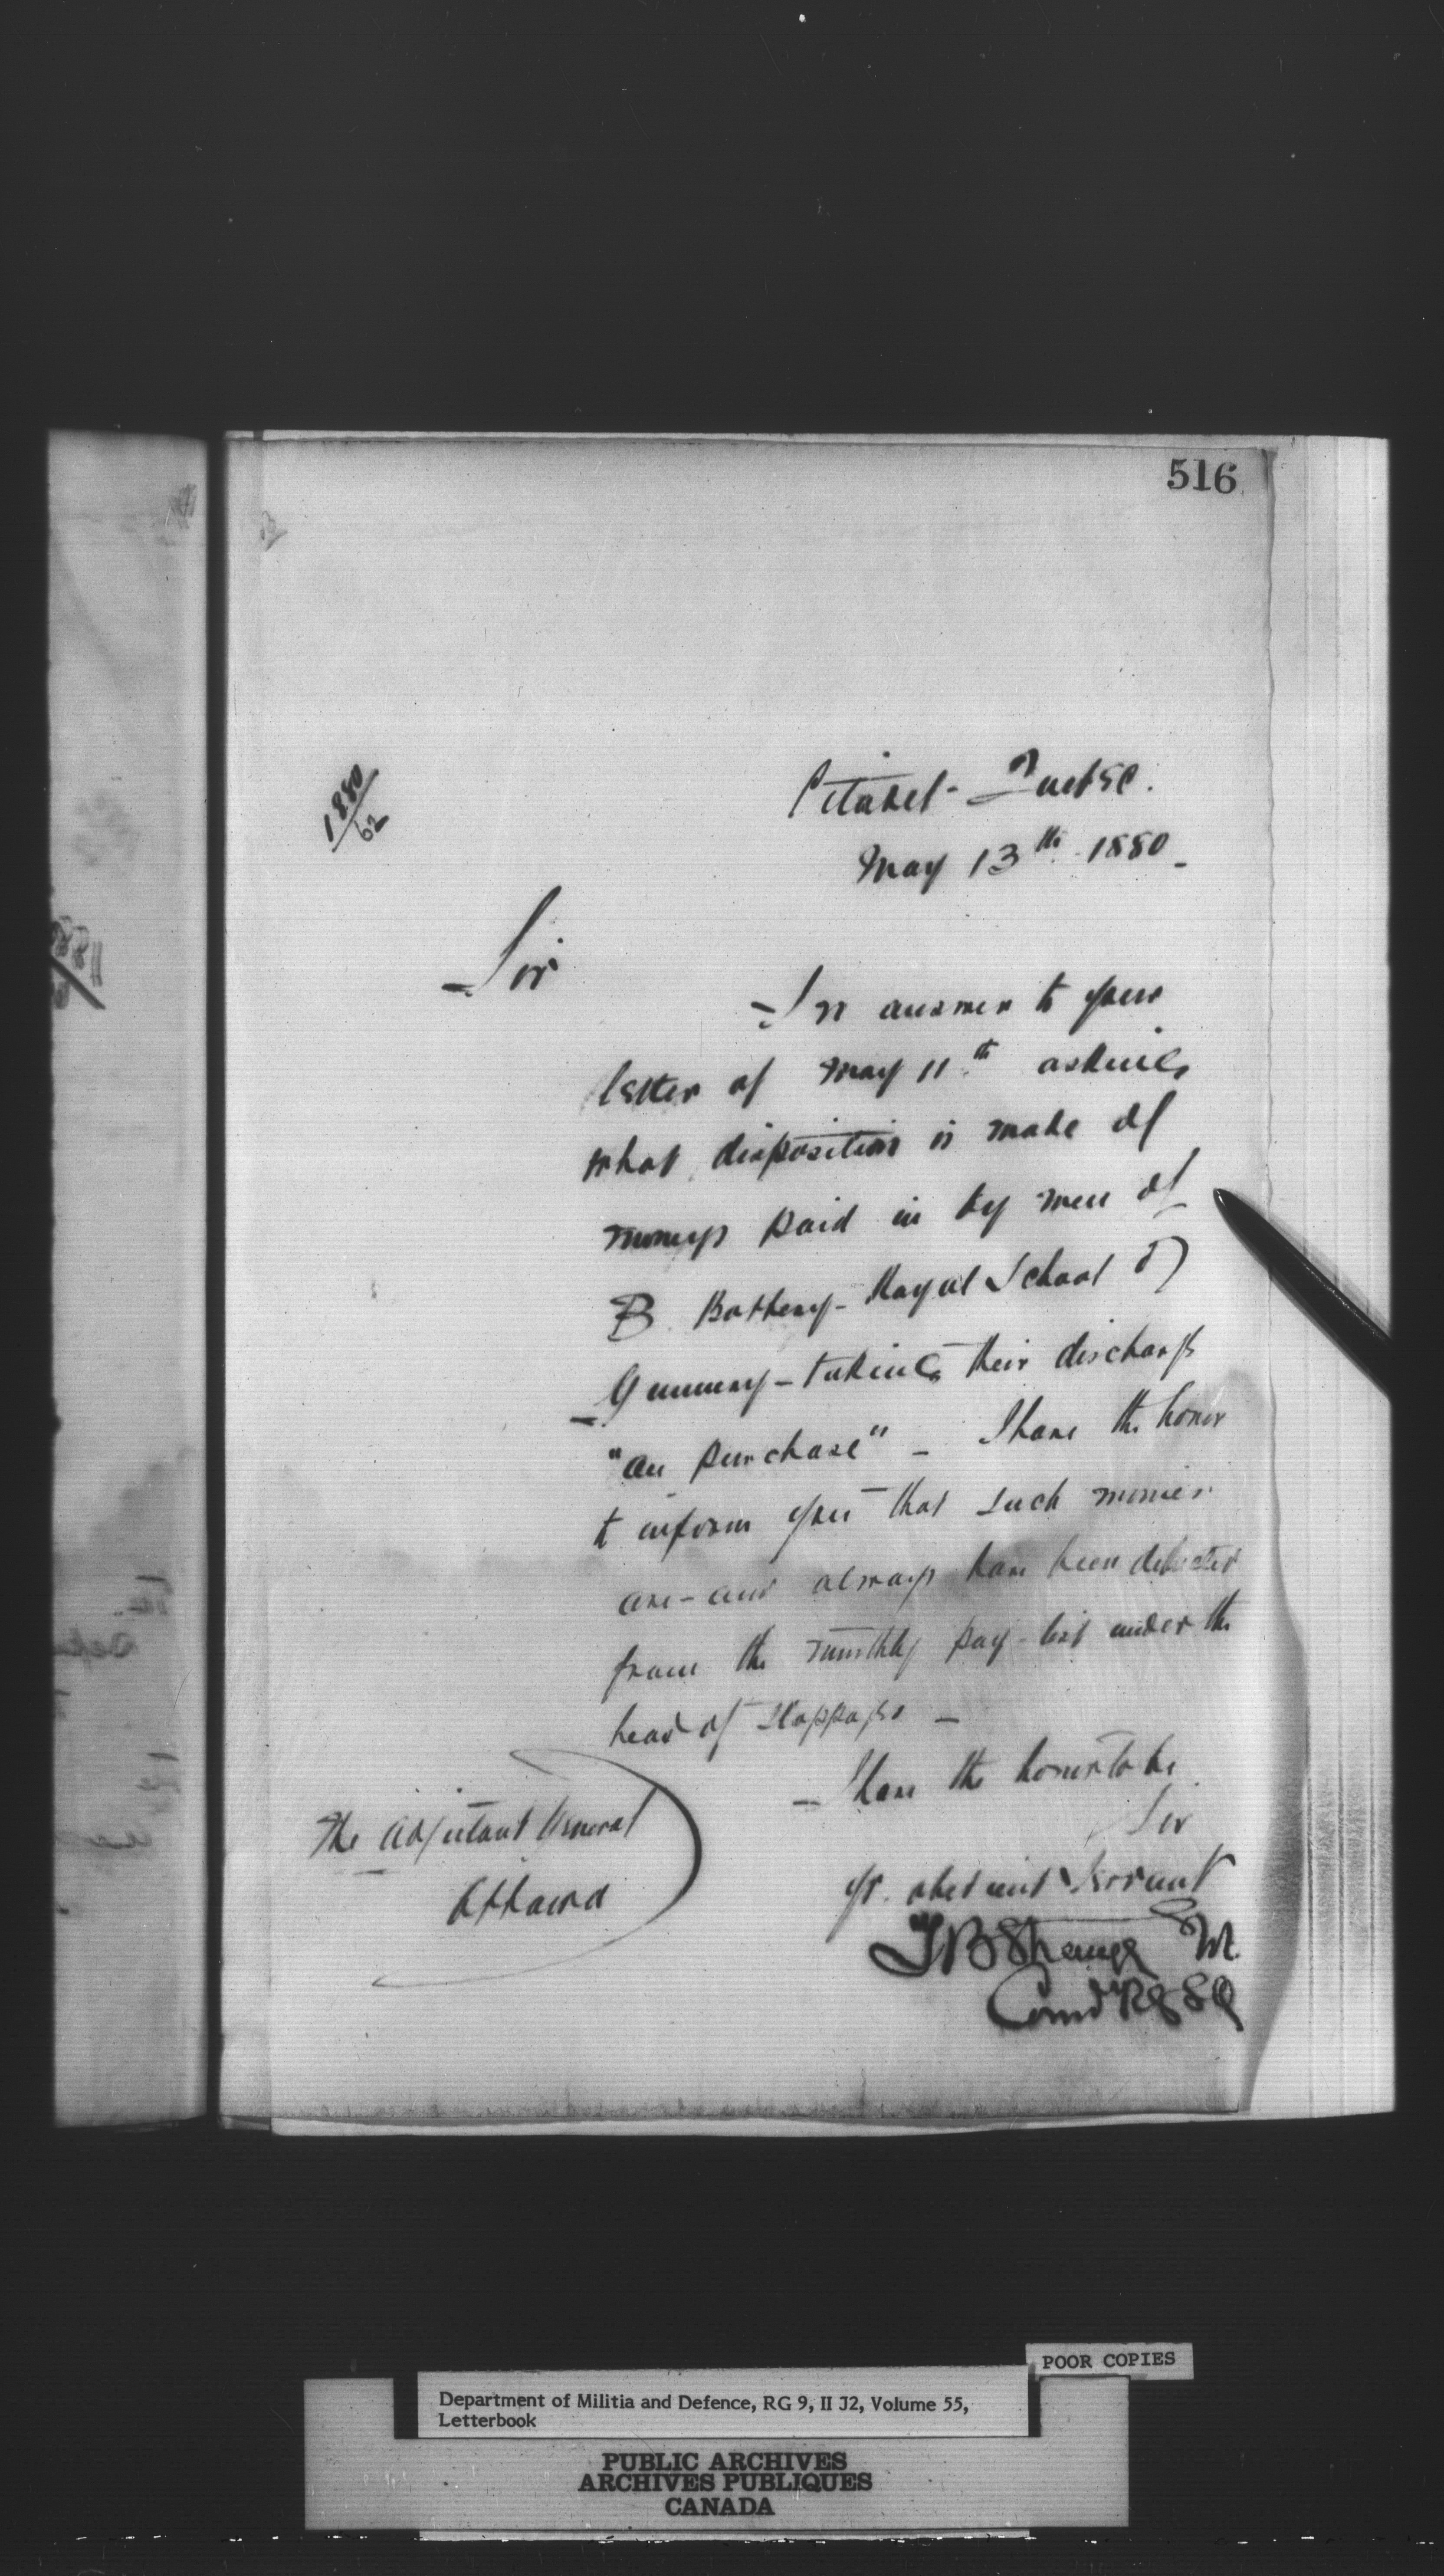 516
1880/62
Citadel - Quebec.
May 13th 1880 -
Sir
In answer to your
letter of May 11th asking
what disposition is made of
moneys paid in by men of
B Battery - Royal School of
Gunnery - taking their discharge
"on purchase" - I have the honor
to inform you that such monies
are - and always have been deducted
from the monthly pay-list under the
head of stoppages -
I have the honor to be
Sir
yr. obedient Servant
TB Strange
Comdt
The Adjutant General
Ottawa
POOR COPIES
Department of Militia and Defence, RG 9, II J2, Volume 55,
Letterbook
PUBLIC ARCHIVES
ARCHIVES PUBLIQUES
CANADA